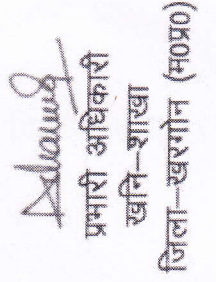 प्रभारी अधिकारी
खनि–शाखा
जिला–खरगोन (म0प्र0)